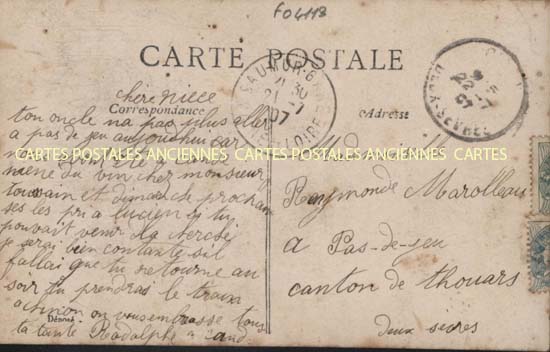 F04113
CARTE POSTALE
SAUMUR-G
30
21 -7
07
LOIRE
22 -7
07
DEUX-SEVRES
Correspondance
Adresse
chère nièce
ton oncle na pas plus aller
a pas de jeu aujourd'hui car
CARTES POSTALES ANCIENNES CARTES POSTALES ANCIENNES CARTES POSTALES ANCIENNES
mene du vin cher monsieur
tousain et dimanche prochain
ses les pri a lucien si tu
pouvait venir la cherché
je serai bien contante sil
fallai que tu retourne au
soir tu prendrai le train
a chinon on vous embrasse tous
la tante Rodolphe a
Raymonde Marolleau
a Pas-de-jeu
canton de thouars
deux sèvres